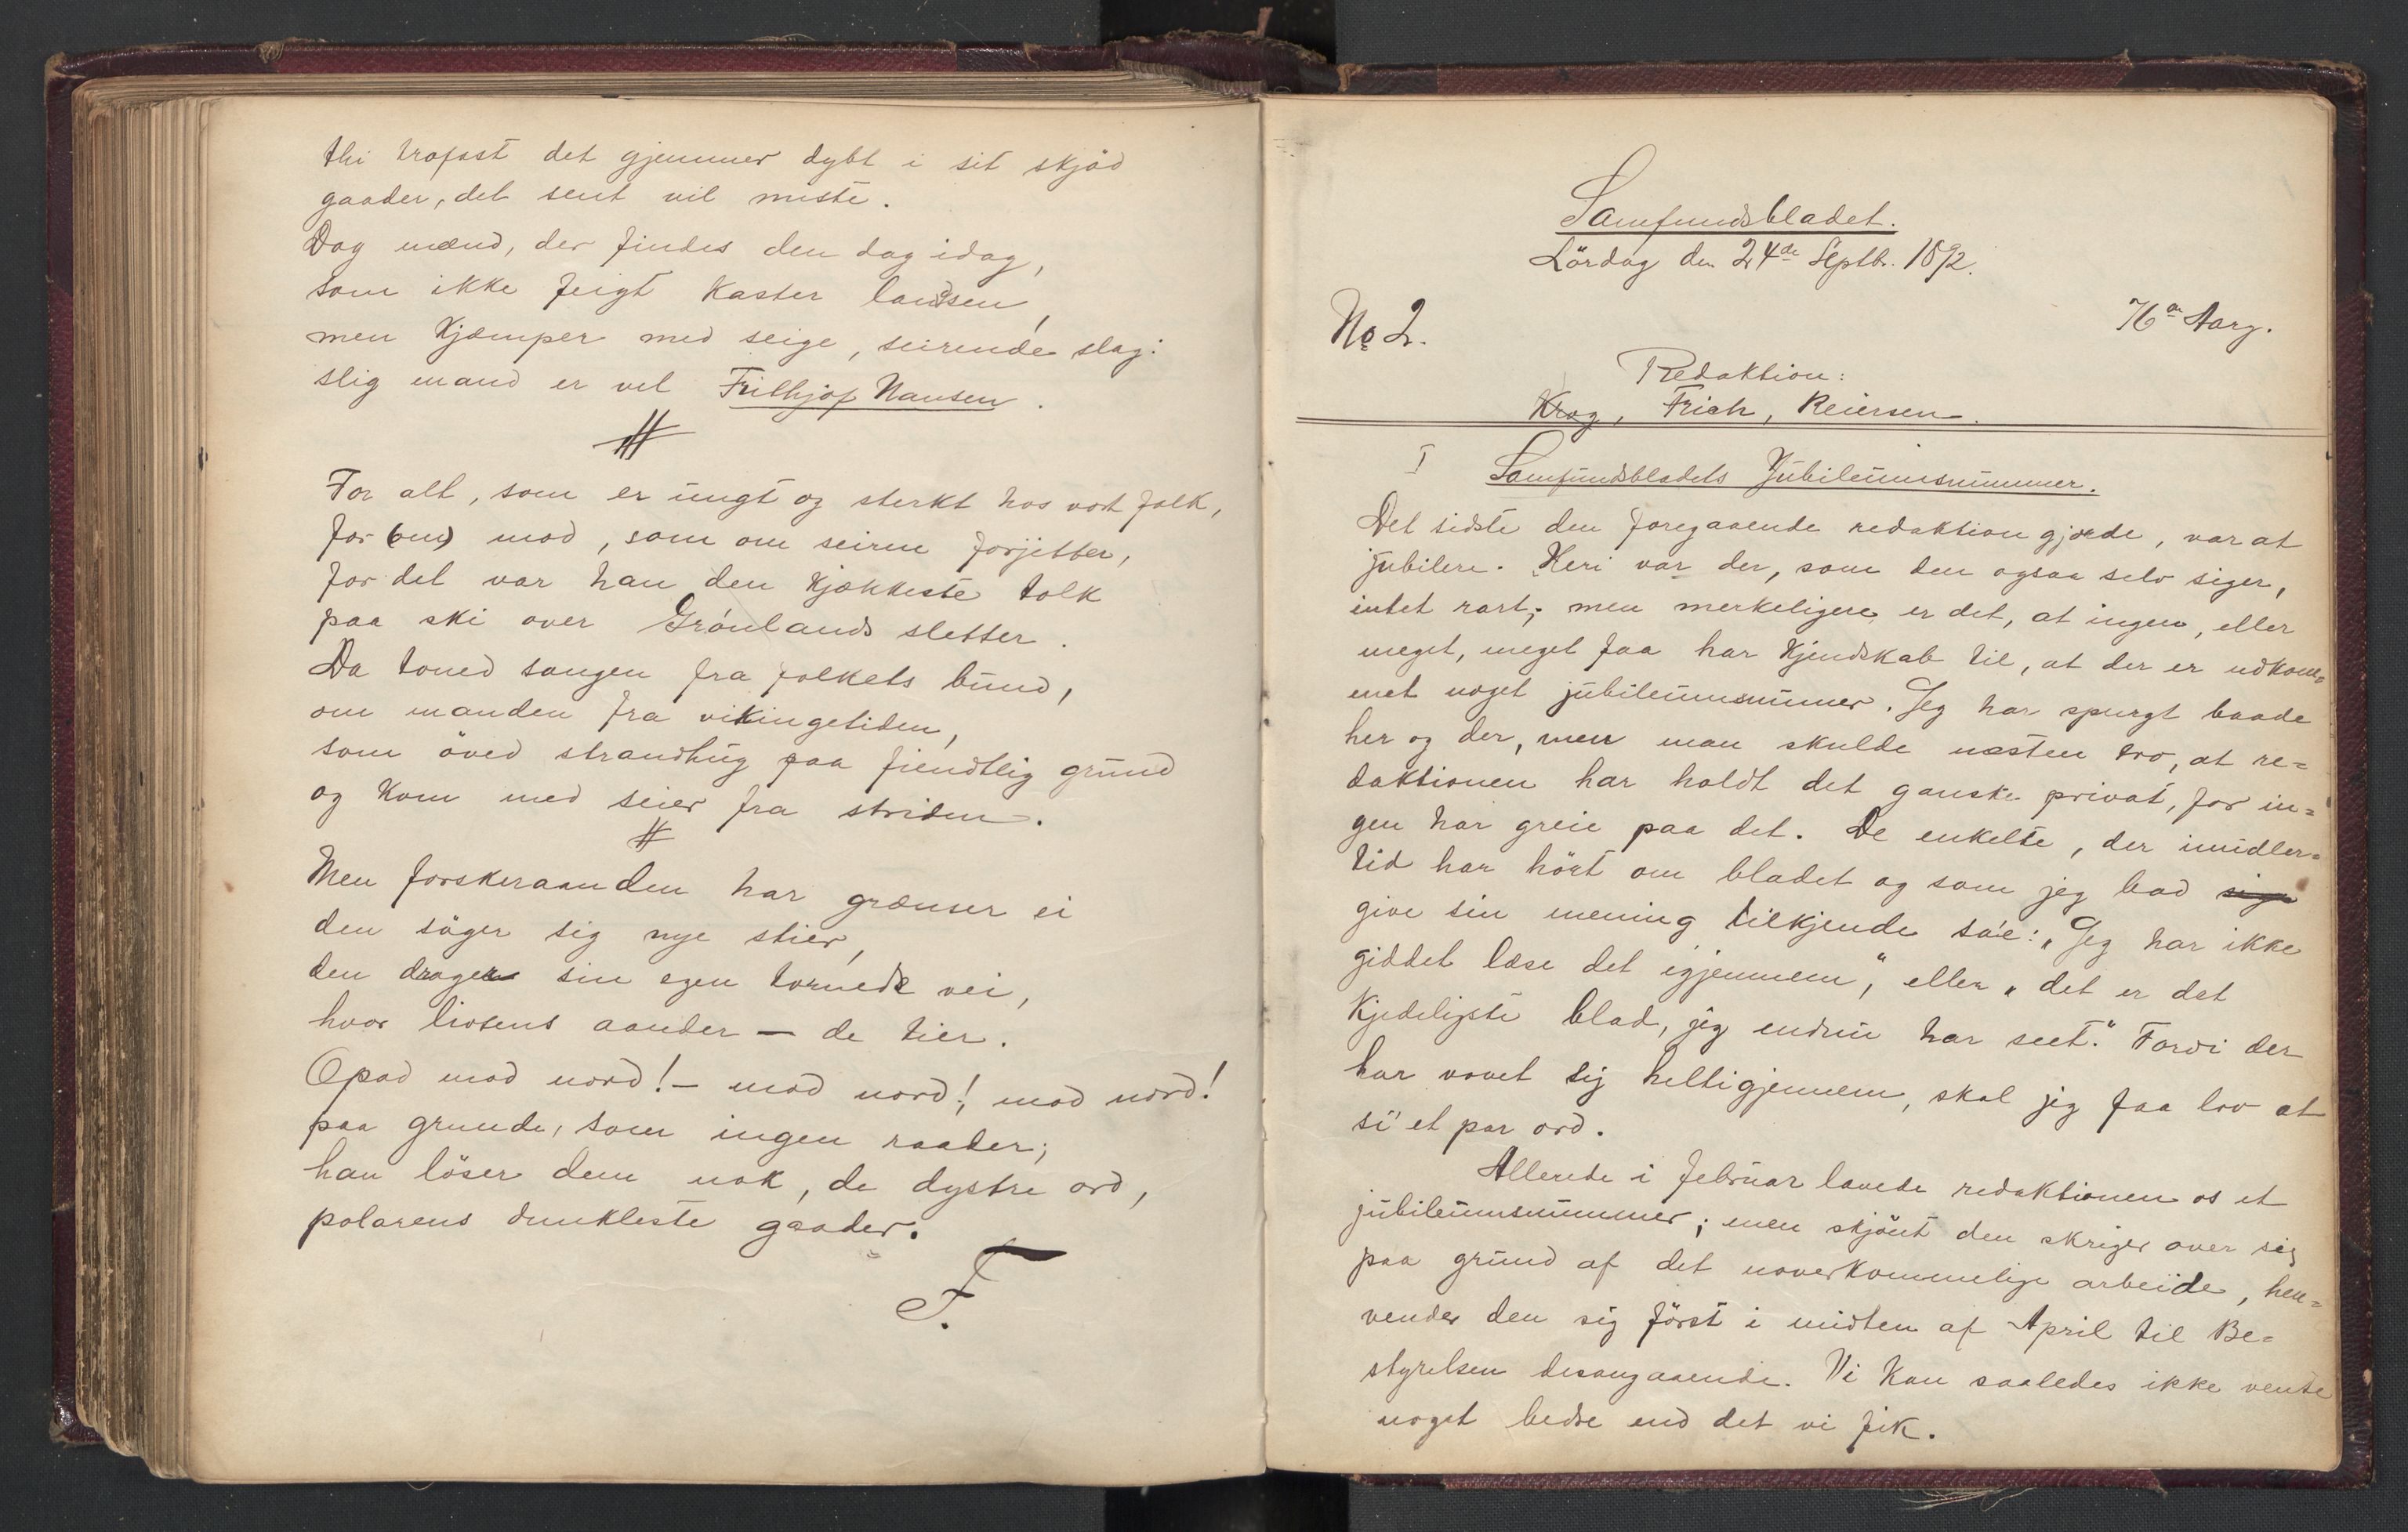 thi trofast det gjemmer dybt i sit skjöd
gaader, det sent vil miste.
Dog mænd, der findes den dag idag,
som ikke feigt kaster landsen,
men kjæmper med seige, seirende slag:
slig mand er vel Frithjof Nansen.
For alt, som er ungt og sterkt hos vort folk,
for (om) mod, som om seiren forjetter,
for det var han den kjækkeste tolk
paa ski over Grönlands sletter.
Da toned sangen fra folkets bund,
om manden fra vikingetiden,
som öved strandhug paa fiendtlig grund
og kom med seier fra striden.
Men forskeraanden har grænser ei
den söger sig nye stier,
den drager sin egen tornede vei,
hvor livsens aander — de tier.
Opad mod nord! – mod nord!, mod nord!
paa grunde, som ingen raader;
han löser dem nok, de dystre ord,
polarens dunkleste gaader.
F.
Samfundsbladet.
Lördag den 24de Septbr. 1892.
No 2.
76de Aarg.
Redaktion:
Krog, Frich, Reiersen.
I Samfundsbladets Jubileumsnummer.
Det sidste den foregaaende redaktion gjorde, var at
jubilere. Heri var der, som den ogsaa selv siger,
intet rart; men merkeligere er det, at ingen, eller
meget, meget faa har kjendskab til, at der er udkom=
met noget jubileumsnummer. Jeg har spurgt baade
her og der, men man skulde næsten tro, at re=
daktionen har holdt det ganske privat, for in=
gen har greie paa det. De enkelte, der imidler=
tid har hört om bladet og som jeg bad sige
give sin mening tilkjende sa'e: „Jeg har ikke
giddet læse det igjennem," eller „det er det
kjedeligste blad, jeg endnu har seet." Fordi der
har vovet sig heltigjennem, skal jeg faa lov at
si' et par ord.
Allerede i februar lavede redaktionen os et
jubileumsnummer; men skjönt den skriger over sig
paa grund af det uoverkommelige arbeide, hen=
vender den sig först i midten af April til Be=
styrelsen desangaaende. Vi kan saaledes ikke vente
noget bedre end det vi fik.